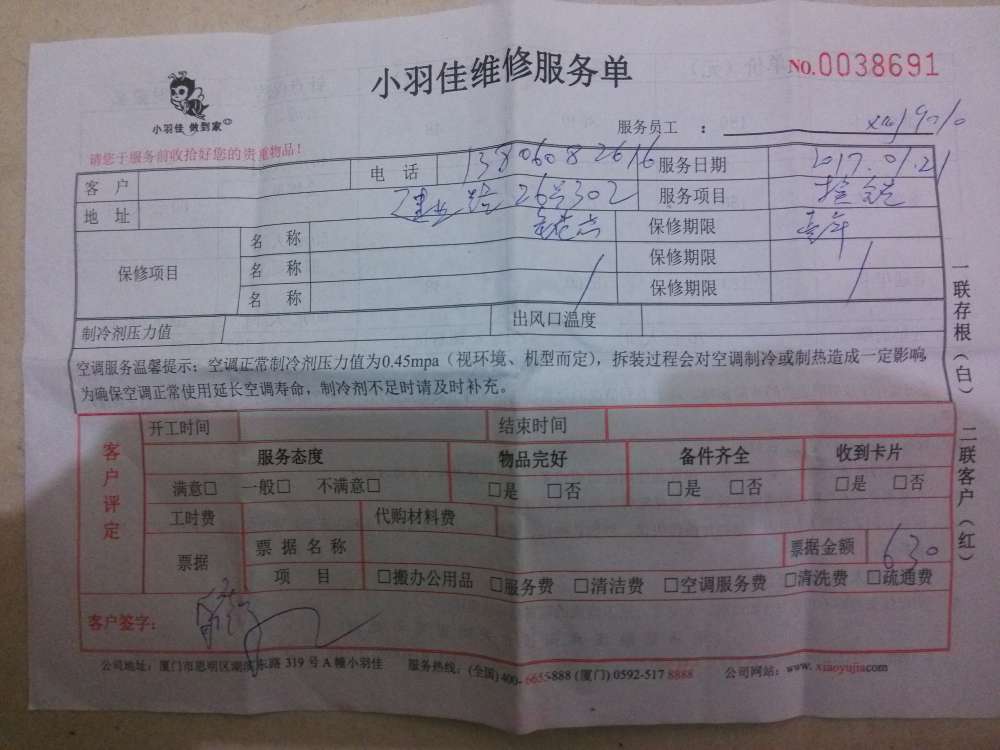 小羽佳维修服务单
NO.0038691
小羽佳 做到家
服务员工 :
请您于服务前收拾好您的贵重物品!
客 户 电 话 13806082616 服务日期 2017.01.21
地 址 建业路26号302 服务项目
保修项目
名 称 保修期限 壹年
名 称 保修期限
名 称 保修期限
制冷剂压力值 出风口温度
空调服务温馨提示:空调正常制冷剂压力值为0.45mpa(视环境、机型而定),拆装过程会对空调制冷或制热造成一定影响,
为确保空调正常使用延长空调寿命,制冷剂不足时请及时补充。
一联存根(白) 二联客户(红)
客户评定
开工时间 结束时间
服务态度 物品完好 备件齐全 收到卡片
满意□ 一般□ 不满意□ □是 □否 □是 □否 □是 □否
工时费 代购材料费
票据 票据名称 票据金额 630
项 目 □搬办公用品 □服务费 □清洁费 □空调服务费 □清洗费 □疏通费
客户签字:
公司地址:厦门市思明区湖滨东路 319 号 A 幢小羽佳 服务热线:(全国)400-6655-888 (厦门)0592-517 8888 公司网站:www.xiaoyujia.com